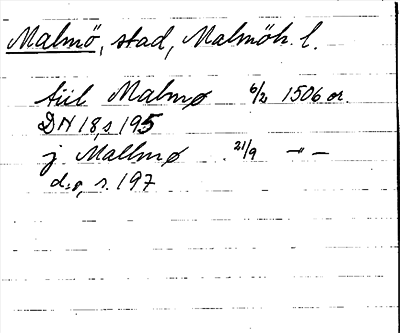 Malmö, stad, Malmöh. l.
tiil Malmø 6/2 1506 or.
DN 18, s 195
j Mallmø 21/9 -"-
d:o, s. 197